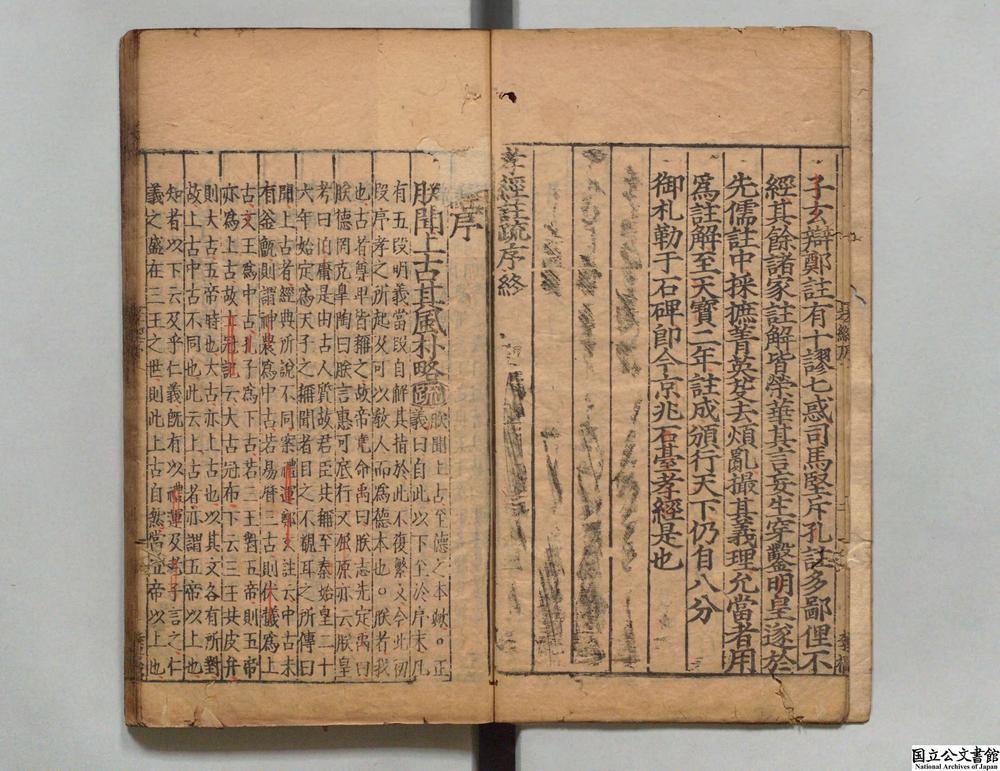 子玄辯鄭註有十謬七惑司馬堅斥孔註多鄙俚不
經其餘諸家註解皆榮華其言妄生穿鑿明皇遂於
先儒註中採摭菁英芟去煩亂撮其義理允當者用
爲註解至天寶二年註成頒行天下仍自八分
御札勒于石碑即今京兆石臺孝經是也
孝經註疏序終
序
朕聞上古其風朴略疏
朕聞上古至德之本歟○正
義曰自此以下至於序末凡
有五段明義當段自解其指於此不復繁文今此初
段序孝之所起及可以教人而爲德本也○朕者我
也古者尊卑皆稱之故帝堯命禹曰朕志先定禹曰
朕德罔克皐陶曰朕言惠可底行又屈原亦云朕皇
考曰伯庸是由古人質故君臣共稱至秦始皇二十
六年始定爲天子之稱聞者目之不覩耳之所傳曰
聞上古者經典所說不同案禮運鄭玄註云中古未
有釜甑則謂神農爲中古若易曆三古則伏羲爲上
古文王爲中古孔子爲下古若三王對五帝則五帝
亦爲上古故士冠記云大古冠布下云三王共皮弁
則大古五帝時也大古亦上古也以其文各有所對
故上古中古不同也此云上古者亦謂五帝以上也
知者以下云及乎仁義旣有以禮運及老子言之仁
義之盛在三王之世則此上古自然當五帝以上也
国立公文書館
National Archives of Japan